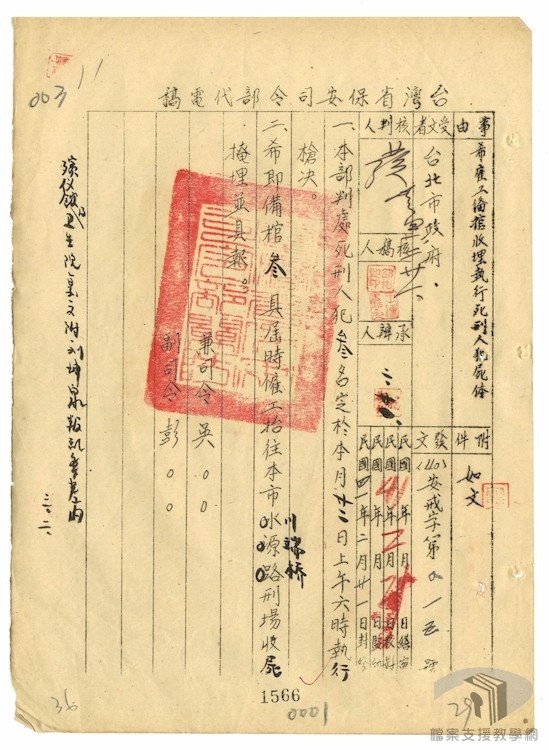 台灣省保安司令部代電稿
事由
希雇工備棺收埋執行死刑人犯屍体
附件
如文
受文者
台北市政府
發文
安戒字第〇一五號
核判人
核稿人
承辦人
民國年月日繕寫
民國年月日校對
民國年月日監印
民國四一年二月廿一日封發
一、本部判處死刑人犯叁名定於本月廿二日上午六時執行
槍决。
二、希即備棺叁具屆時僱工抬往本市水源路刑場收屍
川端桥
掩埋並具報。
兼司令吳〇〇
副司令彭〇〇
003
11
1566
0001
36
29
檔案支援教學網